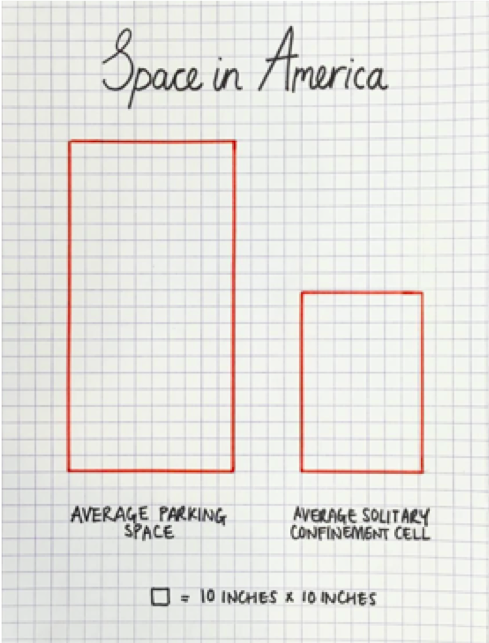 Space in America
AVERAGE PARKING
SPACE
AVERAGE SOLITARY
CONFINEMENT CELL
= 10 INCHES x 10 INCHES